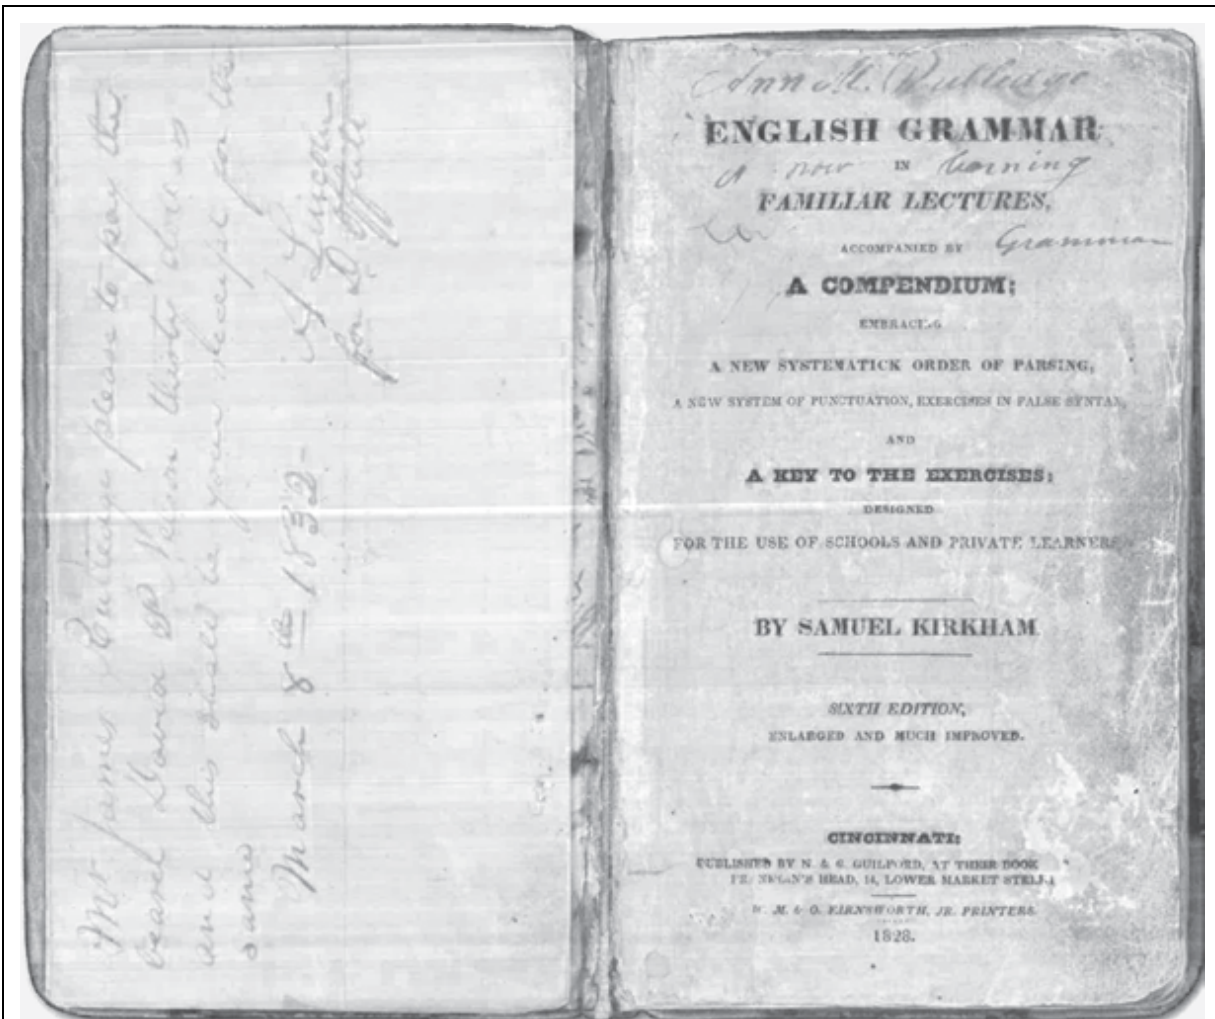 Mr James Rutledge please to pay the
bearer David P Nelson thirty dollars
and this shall be your receipt for the
same
March 8th 1832-
A Lincoln
for D Offutt
Ann M. Rutledge
ENGLISH GRAMMAR
is now learning
IN
FAMILIAR LECTURES,
Grammar
ACCOMPANIED BY
A COMPENDIUM;
EMBRACING
A NEW SYSTEMATICK ORDER OF PARSING,
A NEW SYSTEM OF PUNCTUATION, EXERCISES IN FALSE SYNTAX,
AND
A KEY TO THE EXERCISES;
DESIGNED
FOR THE USE OF SCHOOLS AND PRIVATE LEARNERS
BY SAMUEL KIRKHAM
SIXTH EDITION,
ENLARGED AND MUCH IMPROVED.
CINCINNATI:
PUBLISHED BY N. & G. GUILFORD, AT THEIR BOOK
HEAD, 14, LOWER MARKET STREET
W. M. & O. FARNSWORTH, JR. PRINTERS.
1828.